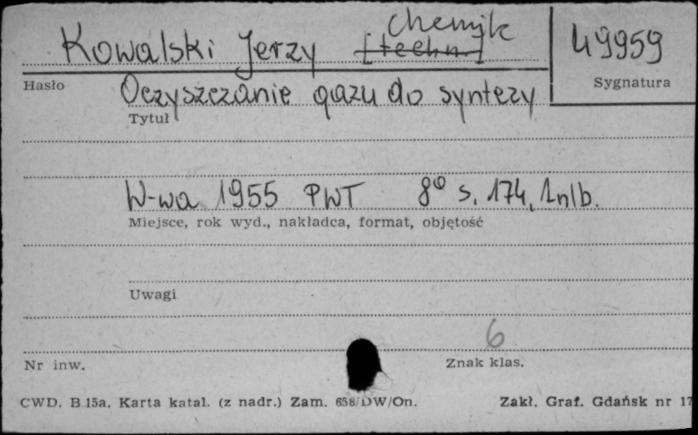 chemik
Kowalski Jerzy [techn.] 49959
Hasło Sygnatura
Oczyszczanie gazu do syntezy
Tytuł
W-wa 1955 PWT 8° s. 174, 1nlb.
Miejsce, rok wyd., nakładca, format, objętość
Uwagi
6
Nr inw. Znak klas.
CWD. B 15a. Karta katal. (z nadr.) Zam. 658/DW/On. Zakł. Graf. Gdańsk nr 17